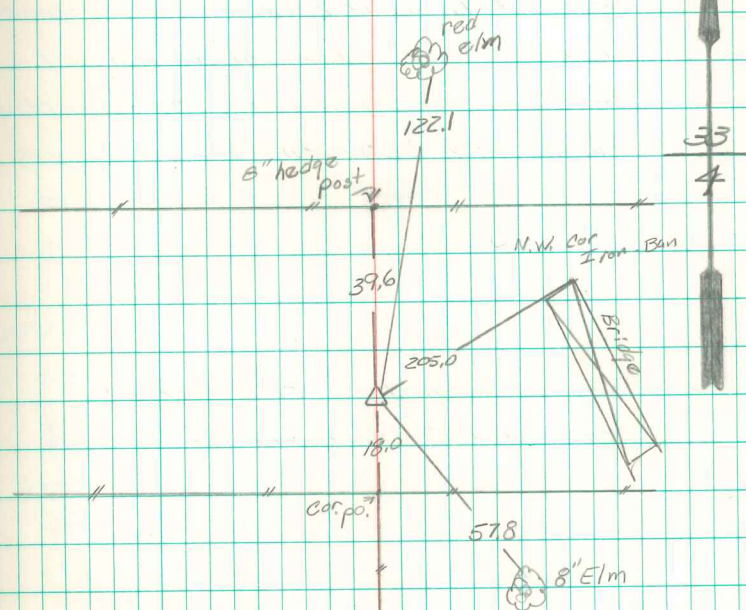 red
elm
122.1
33
4
8" hedge
post
N.W. Cor
Iron Ban
39.6
Bridge
205.0
18.0
cor. po.
57.8
8" Elm